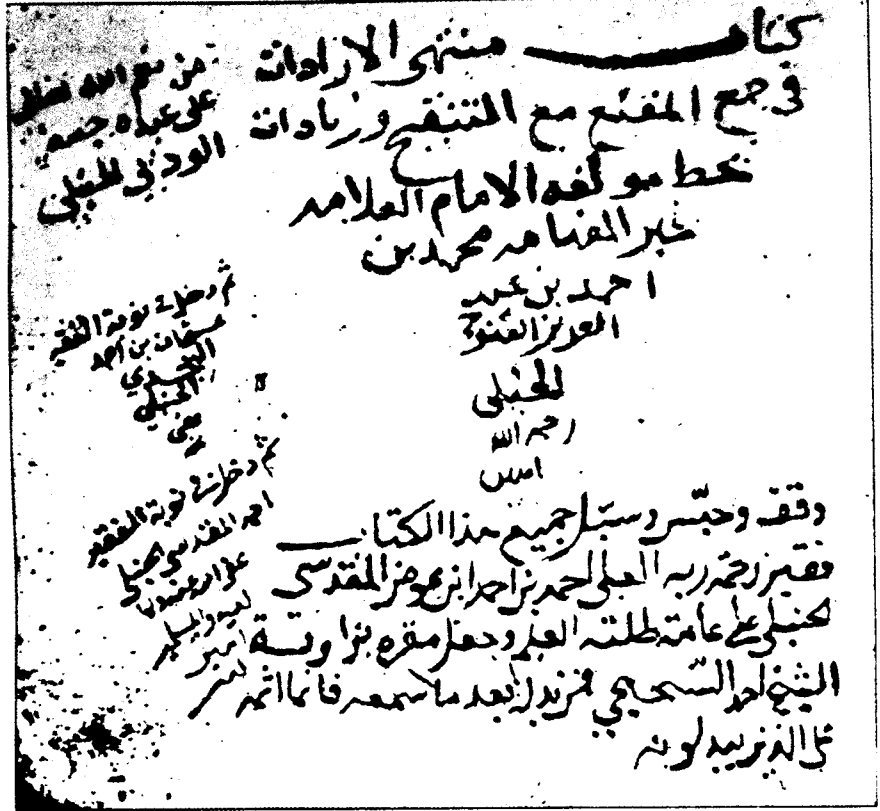 كتاب منتهى الارادات
في جمع المقنع مع التنقيح وزيادات
بخط مولفه الامام العلامه
الفهامه محمد بن
احمد بن عبد
العزيز الفتوحي
الحنبلي
رحمه الله
امين
وقف وحبّس وسبّل جميع هذا الكتاب
فقير رحمة ربه العلي احمد بن احمد ابن عوض المقدسي
الحنبلي على عامة طلبة العلم وجعل مقره بزاوية
الشيخ احمد السحيمي فمن بدله بعد ما سمعه فانما اثمه
على الذين يبدلونه
من نعم الله تعالى
على عبده
الحنبلي
ثم دخل في نوبة الفقير
عثمان بن احمد
النجدي
الحنبلي
ثم دخل في نوبة الفقير
احمد المقدسي الحنبلي